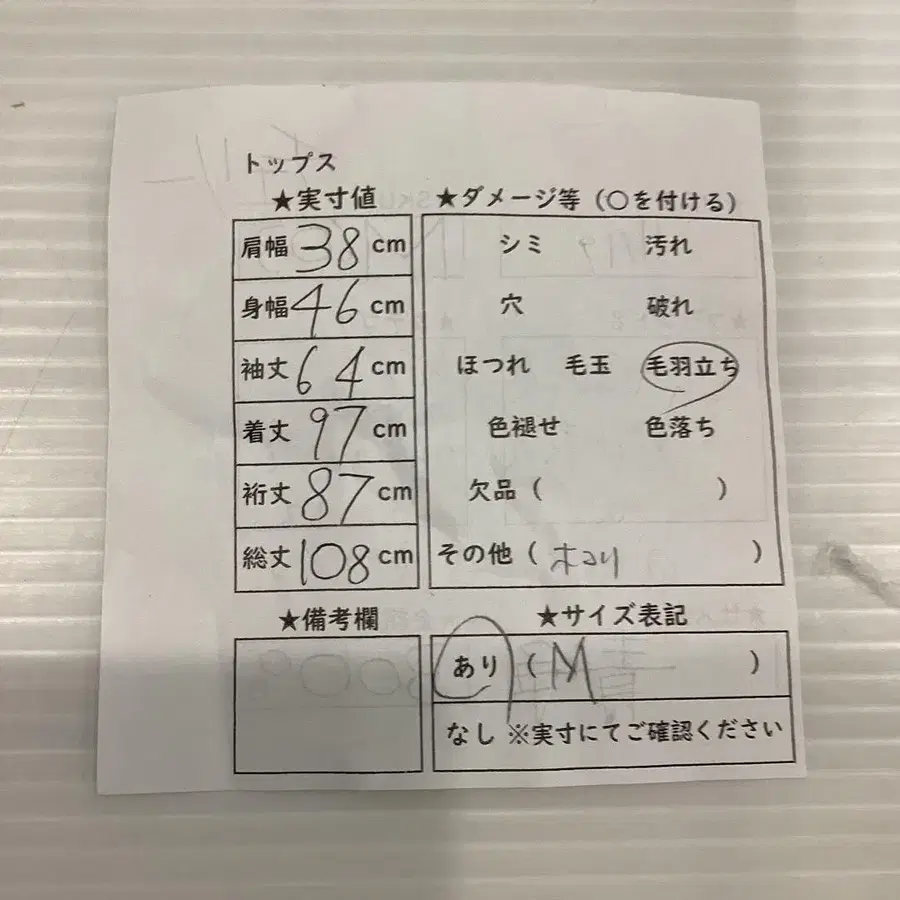 トップス
★実寸値
肩幅 38 cm
身幅 46 cm
袖丈 64 cm
着丈 97 cm
裄丈 87 cm
総丈 108 cm
★ダメージ等（〇を付ける）
シミ 汚れ
穴 破れ
ほつれ 毛玉 毛羽立ち
色褪せ 色落ち
欠品（ ）
その他（ホコリ ）
★備考欄
★サイズ表記
あり（M ）
なし ※実寸にてご確認ください